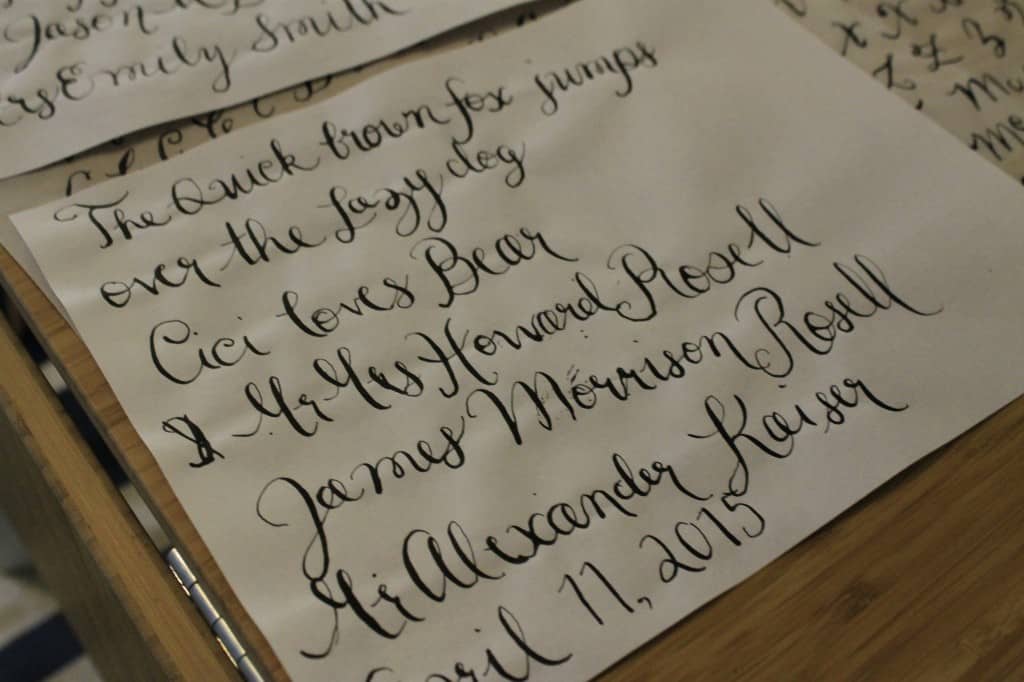 Jason
Emily Smith
The Quick brown fox jumps
over the lazy dog
Cici loves Bear
Mr Mrs Howard Rosell
James Morrison Rosell
Mr Alexander Kaiser
April 11, 2015
x x x
z z z